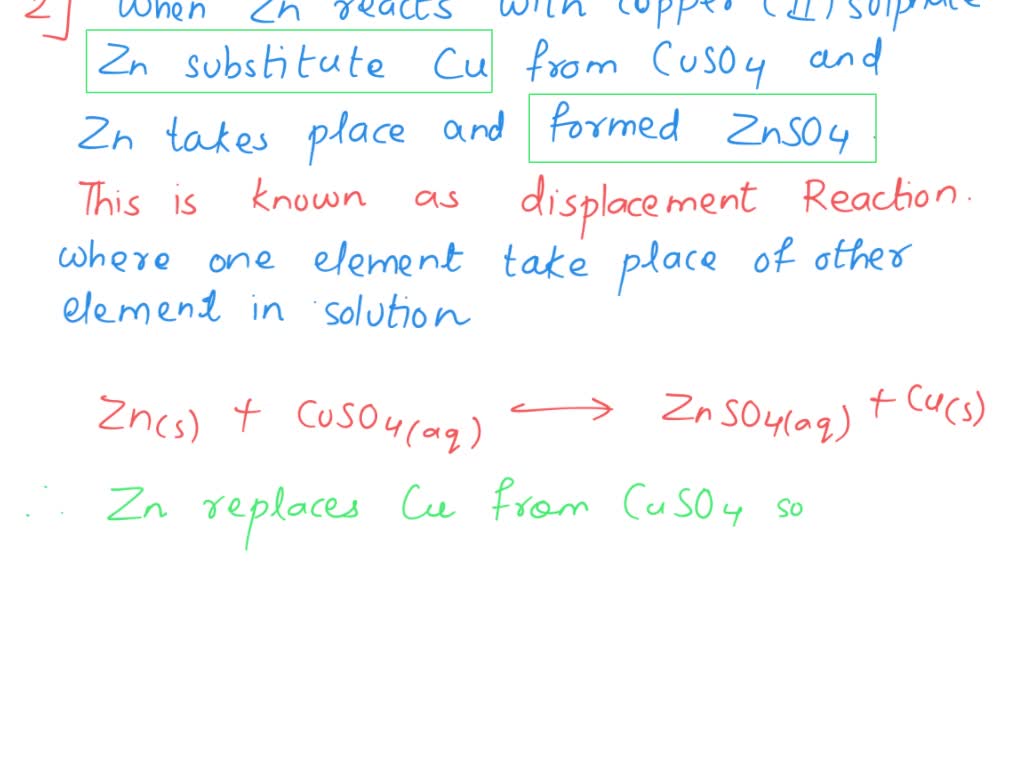 2] When Zn reacts with copper (II) sulphate
Zn substitute Cu from CuSO4 and
Zn takes place and formed ZnSO4.
This is known as displacement Reaction.
where one element take place of other
element in solution
Zn(s) + CuSO4(aq) ⟷ ZnSO4(aq) + Cu(s)
∴ Zn replaces Cu from CuSO4 so